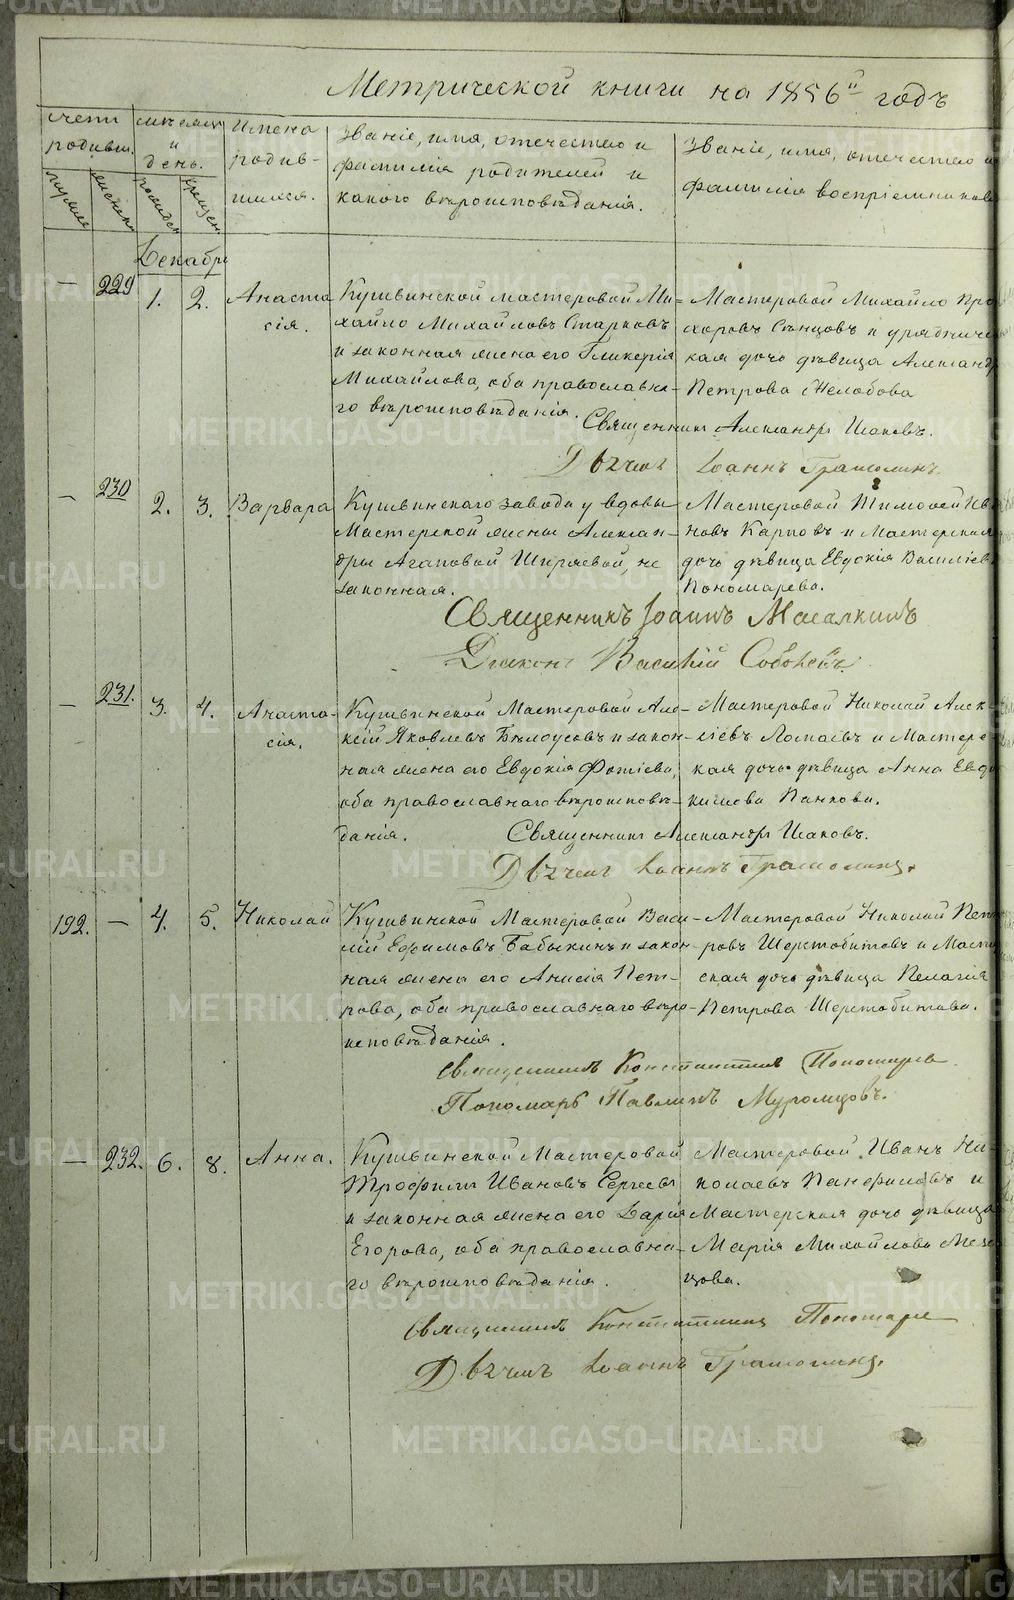 Метрической книги на 1856й годъ
счетъ родивш.
мужеска
женска
мѣсяцъ и день.
рожден
крещен
Имена родив-
шихся.
Званіе, имя, отечество и
фамилія родителей и
какого вѣроисповѣданія.
Званіе, имя, отечество и
фамилія воспріемников
Декабрь
— 229 1. 2. Анаста
сія.
Кушвинской мастеровой Ми-
хайло Михайловъ Старковъ
и законная жена его Гликерія
Михайлова, оба православна-
го вѣроисповѣданія.
Мастеровой Михайло Про
хоровъ Сѣнцовъ и урядничес
кая дочь дѣвица Александр
Петрова Желобова
Священник Александр Исаковъ.
Дьячек Іоаннъ Грамолинъ.
— 230 2. 3. Варвара
Кушвинскаго завода у вдовы
Мастерской жены Алексан-
дры Агаповой Ширяевой, не
законная.
Мастеровой Тимофей Ива
новъ Карповъ и Мастерская
дочь дѣвица Евдокія Василіев
Пономарева.
Священникъ Іоаннъ Масалкинъ
Діаконъ Василій Соболевъ.
— 231. 3. 4. Анаста-
сія.
Кушвинской Мастеровой Але-
ксій Яковлевъ Бѣлоусовъ и закон-
ная жена его Евдокія Фотіева,
оба православнаго вѣроисповѣ-
данія.
Мастеровой Николай Алек-
сіевъ Ломаевъ и Мастерс-
кая дочь дѣвица Анна Евдо
кимова Панкова.
Священник Александр Исаковъ.
Дьячек Іоаннъ Грамолинъ.
192. — 4. 5. Николай
Кушвинской Мастеровой Васи-
лій Ефимовъ Бабыкинъ и закон
ная жена его Анисія Пет-
рова, оба православнаго вѣро-
исповѣданія.
Мастеровой Николай Пет
ровъ Шерстобитовъ и Масте
ская дочь дѣвица Пелагія
Петрова Шерстобитова.
Священникъ Константинъ Пономарев
Пономарь Павлинъ Муромцовъ.
— 232. 6. 8. Анна.
Кушвинской Мастеровой
Трофимъ Ивановъ Сергеевъ
и законная жена его Дарья
Егорова, оба православна-
го вѣроисповѣданія.
Мастеровой Иванъ Ни-
колаевъ Панфиловъ и
Мастерская дочь дѣвица
Марія Михайлова Мезе
цова.
Священникъ Константинъ Пономарев
Дьячекъ Іоаннъ Грамолинъ.
METRIKI.GASO-URAL.RU